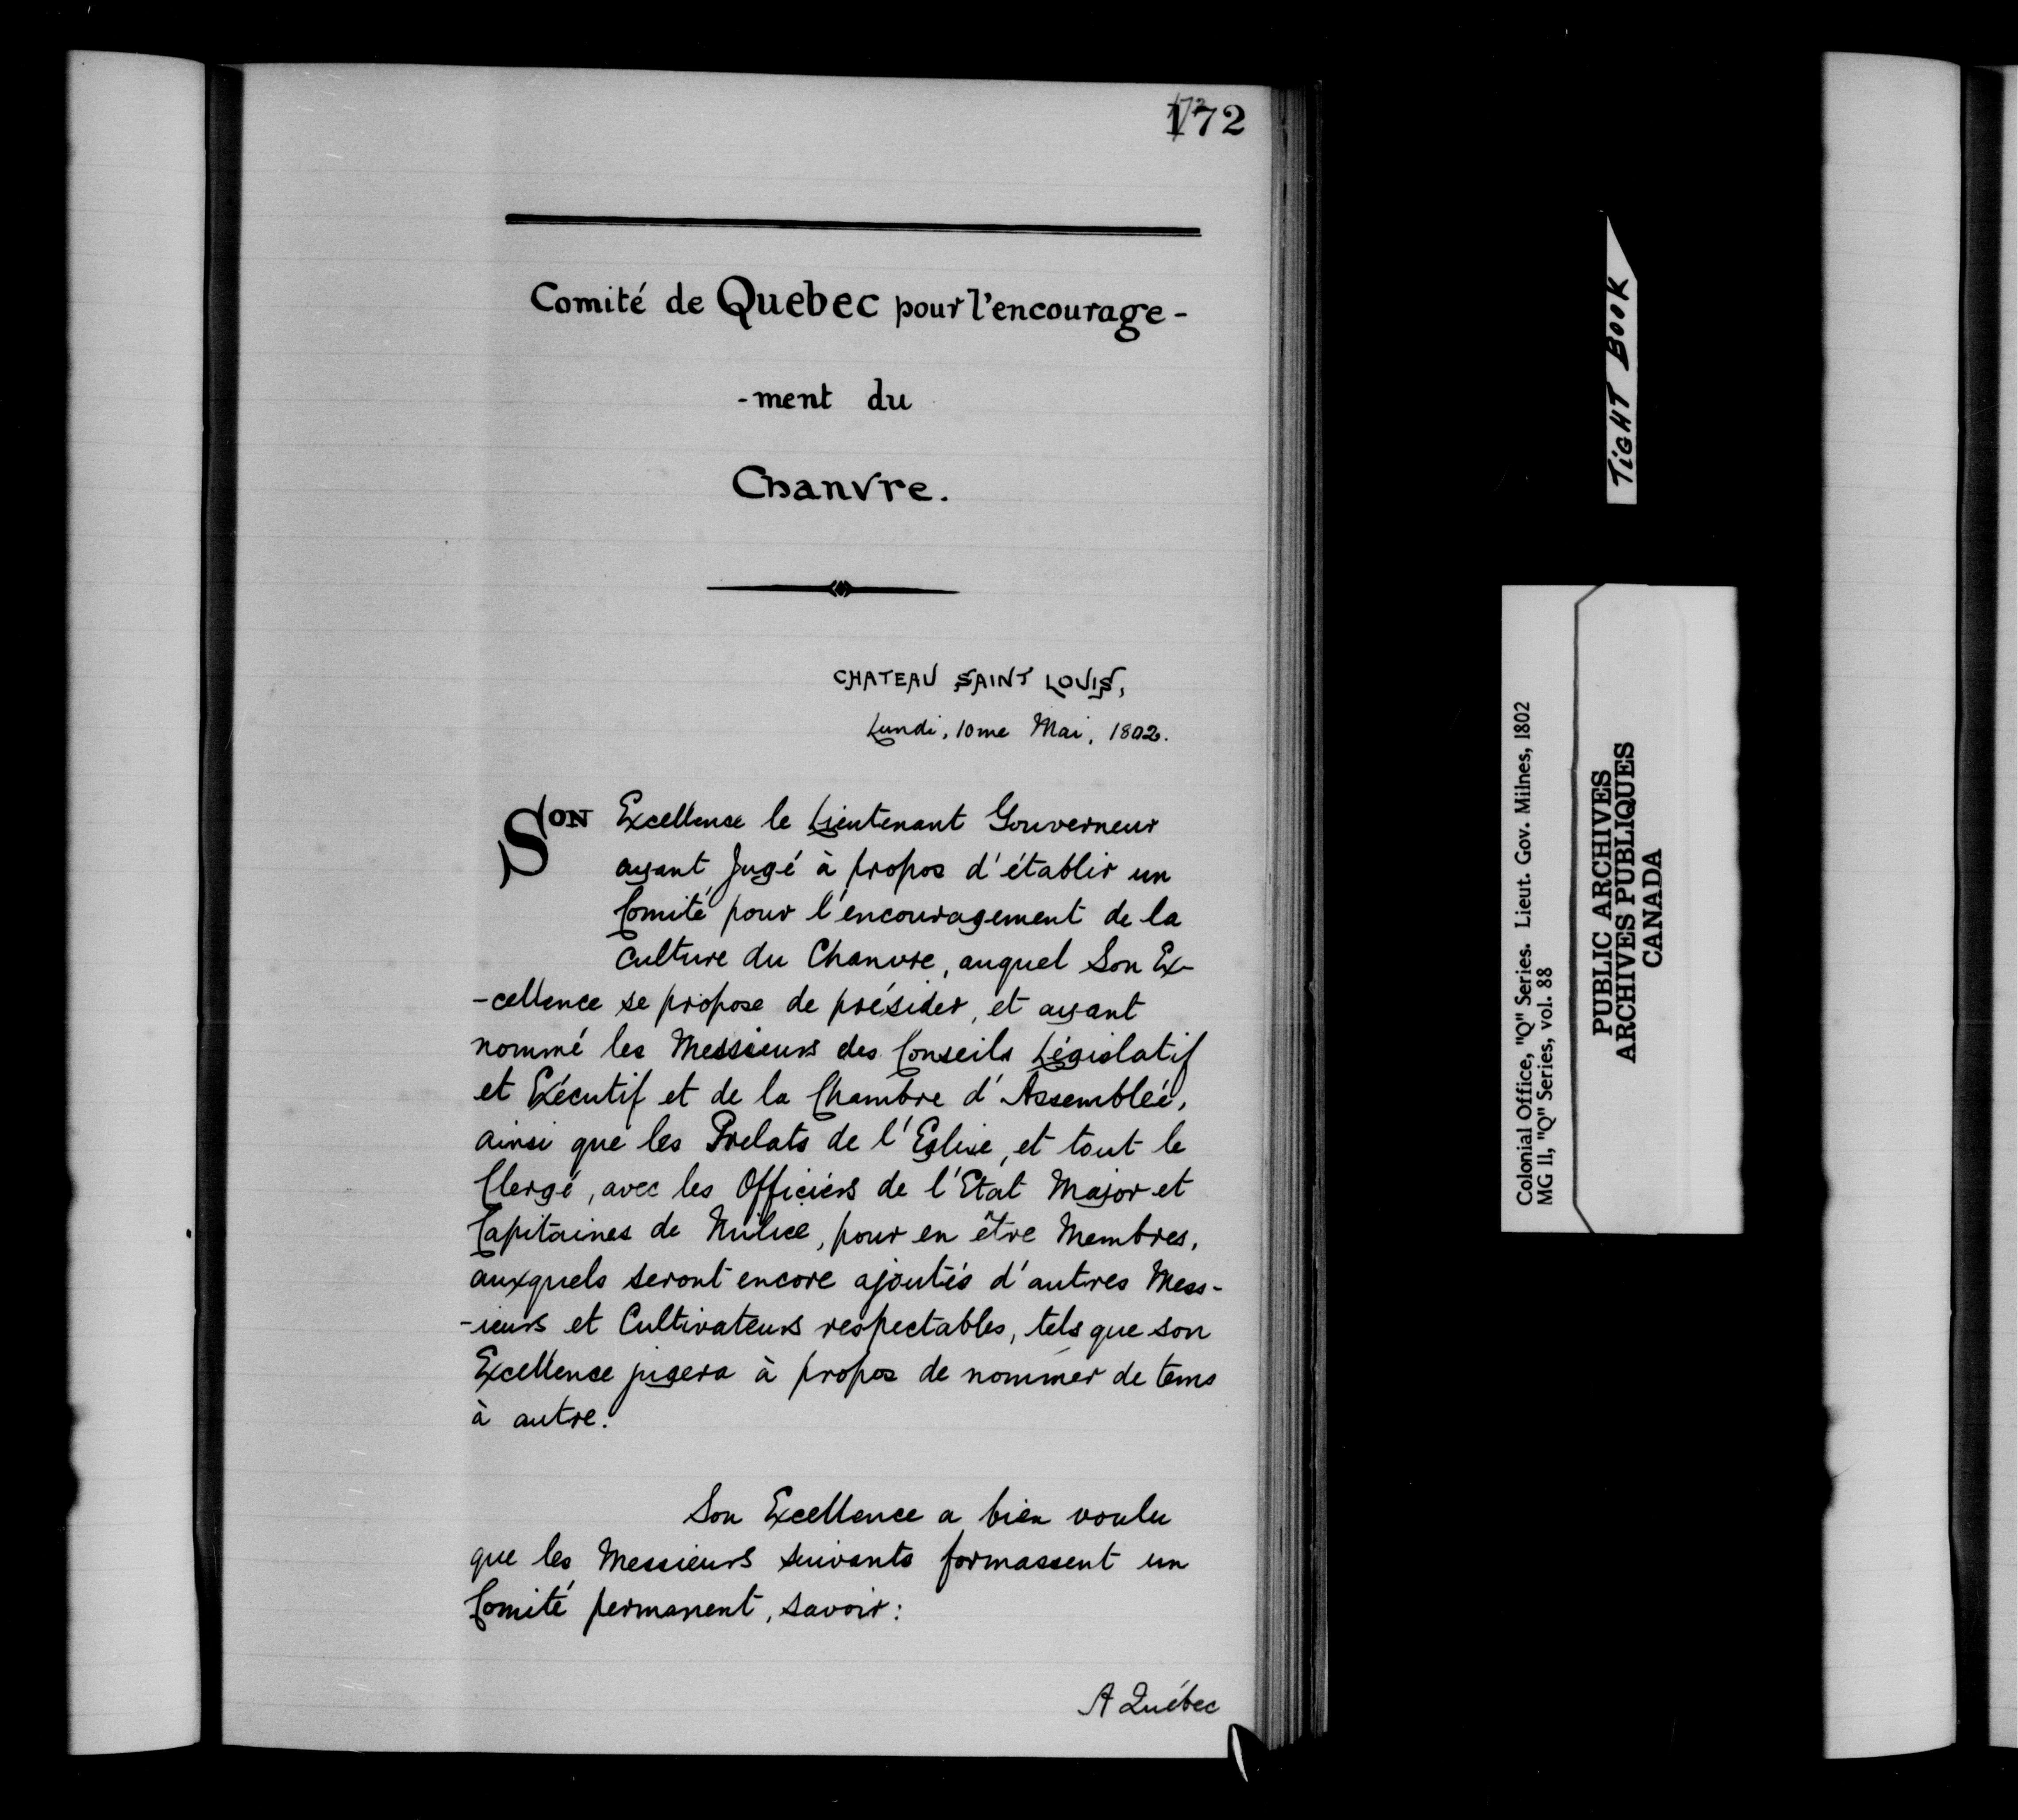 172
172
Comité de Quebec pour l'encourage-
-ment du
Chanvre.
CHATEAU SAINT LOUIS,
Lundi, 10me Mai, 1802.
SON Excellence le Lieutenant Gouverneur
ayant Jugé à propos d'établir un
Comité pour l'encouragement de la
culture du Chanvre, auquel Son Ex-
-cellence se propose de présider, et ayant
nommé les Messieurs des Conseils Législatif
et Exécutif et de la Chambre d'Assembleé,
ainsi que les Prelats de l'Eglise, et tout le
Clergé, avec les Officiers de l'Etat Major et
Capitaines de Milice, pour en être Membres,
auxquels seront encore ajoutés d'autres Mess-
-ieurs et Cultivateurs respectables, tels que son
Excellence jugera à propos de nommer de tems
à autre.
Son Excellence a bien voulu
que les Messieurs suivants formassent un
Comité permanent, savoir:
A Québec
TIGHT BOOK
Colonial Office, "Q" Series. Lieut. Gov. Milnes, 1802
MG 11, "Q" Series, vol. 88
PUBLIC ARCHIVES
ARCHIVES PUBLIQUES
CANADA